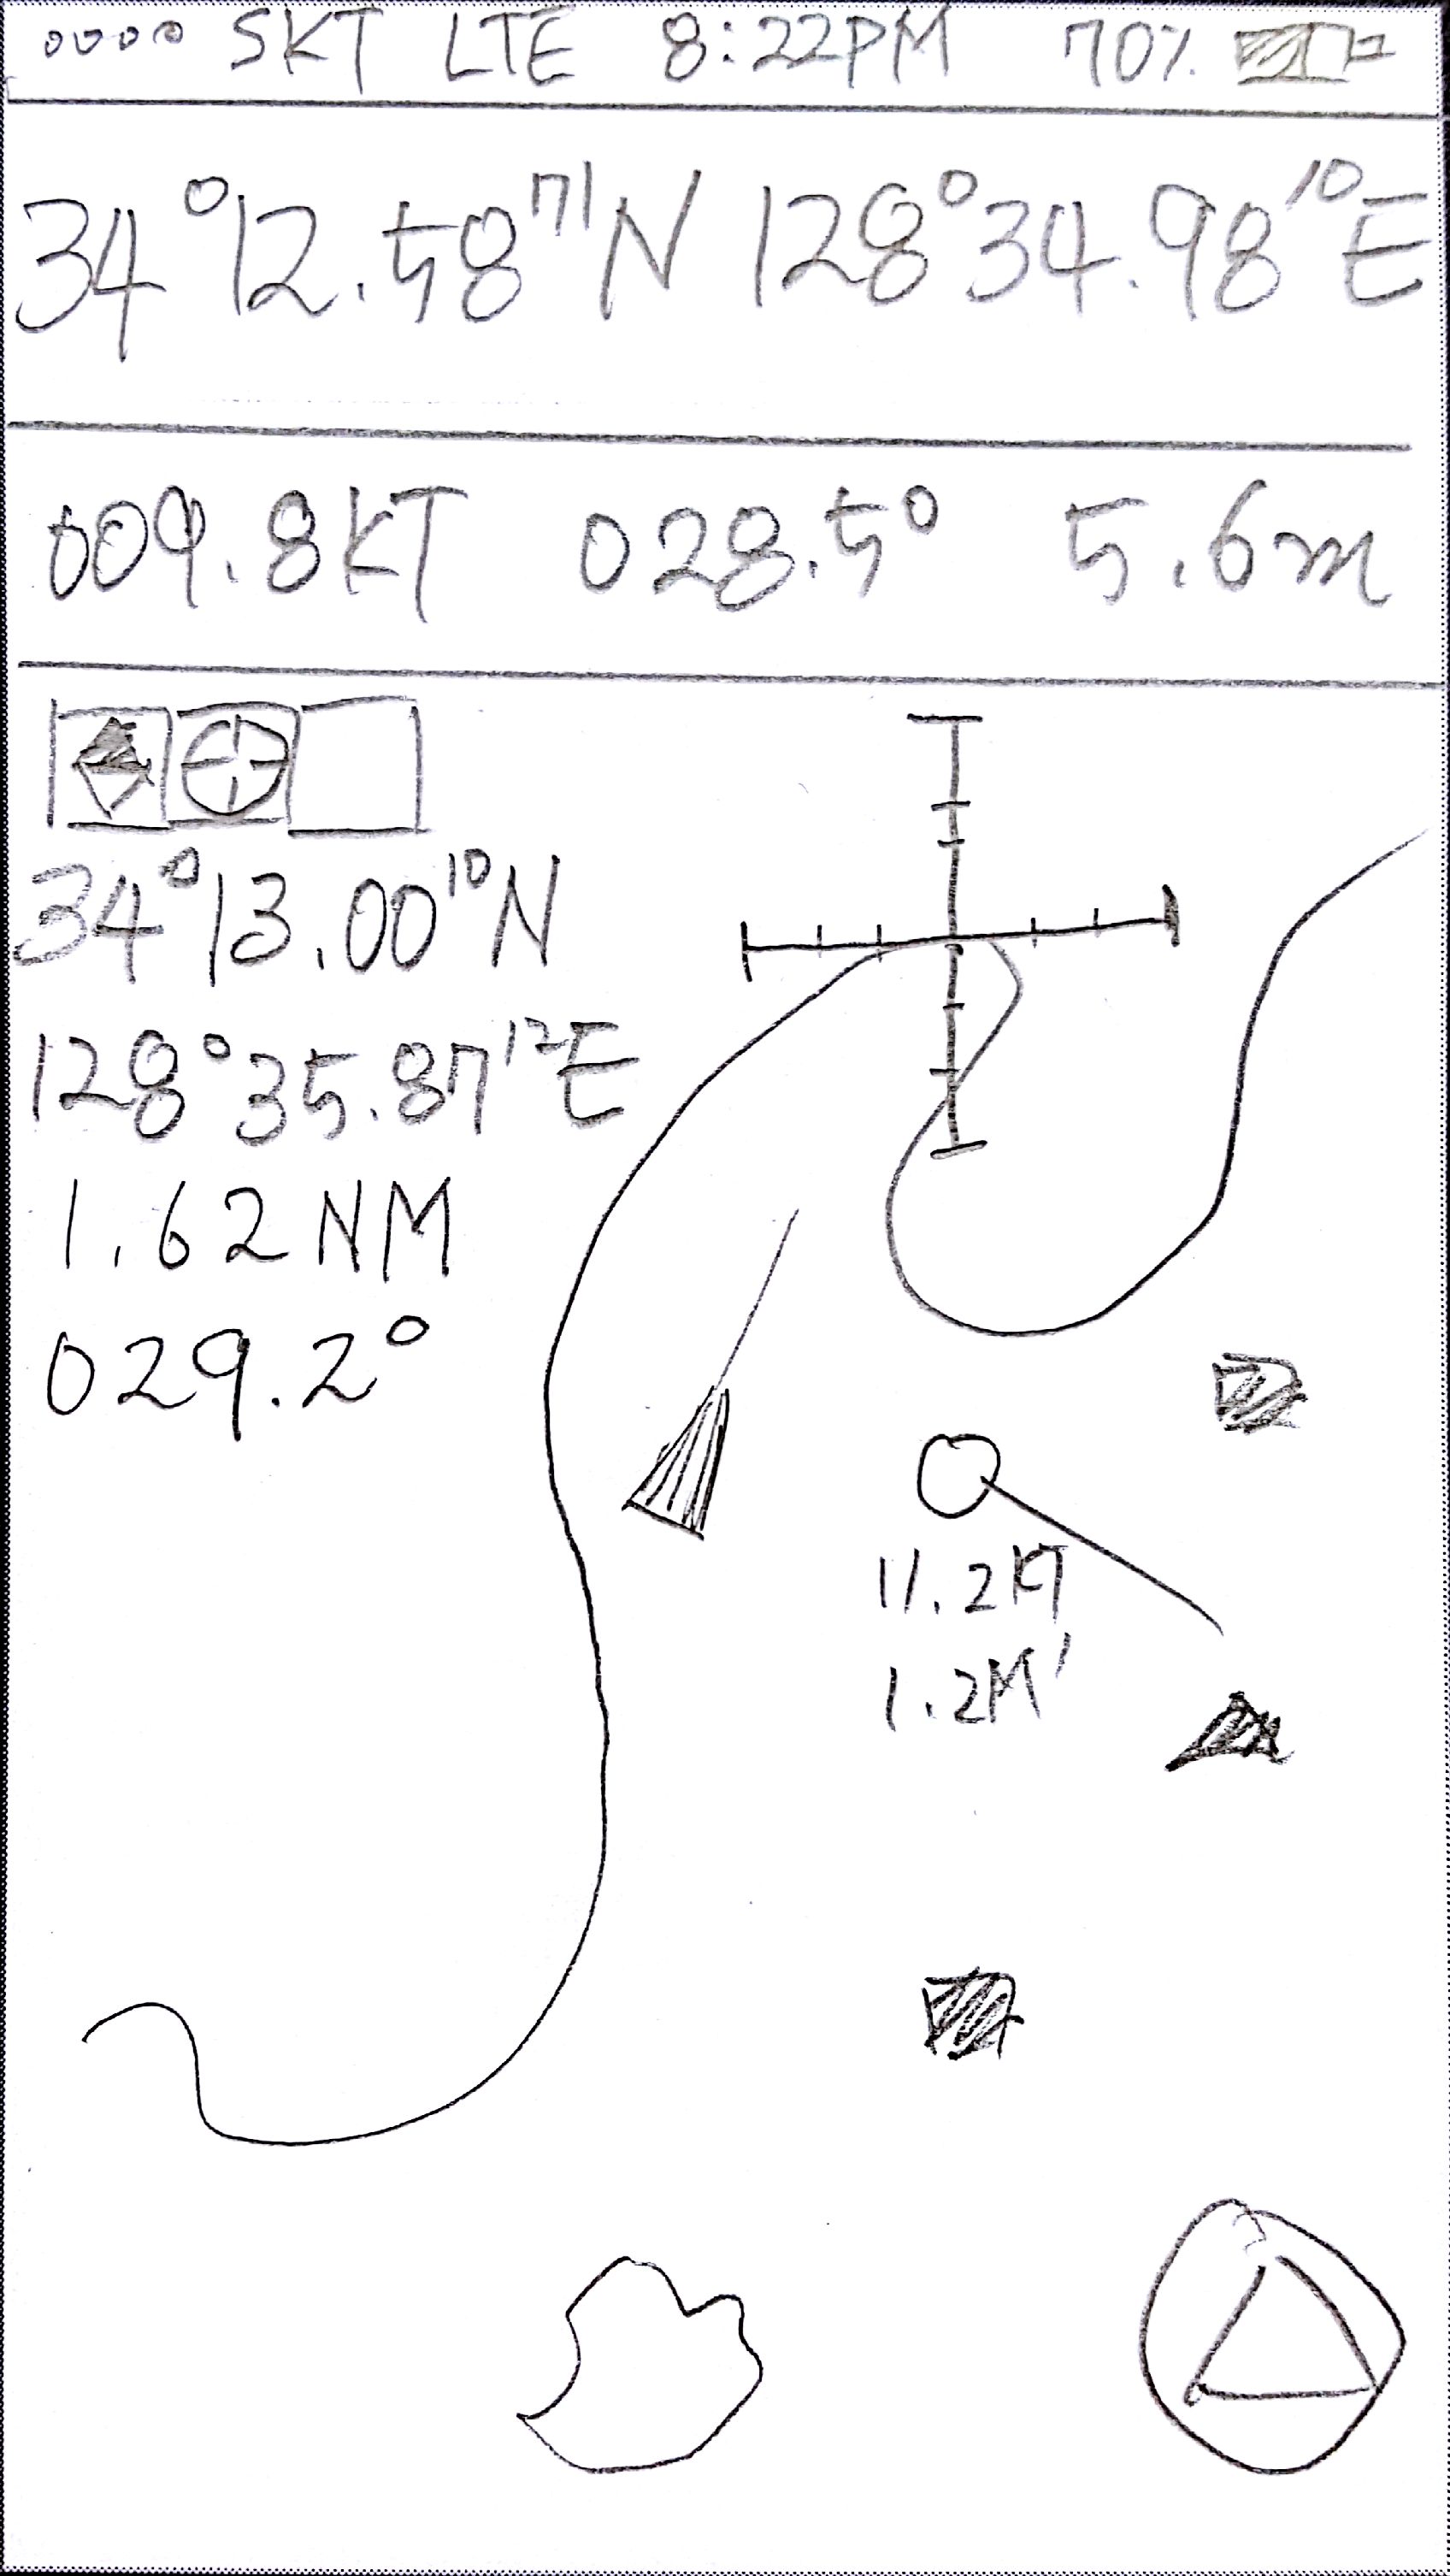 SKT LTE 8:22PM 70%
34°12.58⁷¹N 128°34.98¹⁰E
009.8KT 028.5° 5.6m
34°13.00¹⁰N
128°35.87¹²E
1.62NM
029.2°
11.2KT
1.2M'